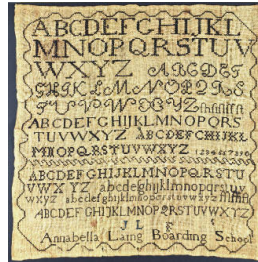 ABCDEFGHIJKL
MNOPQRSTUV
WXYZ ABCDEF
GHIJKLMNOPQRS
TUVWXYZ
ABCDEFGHIJKLMNOPQRS
TUVWXYZ ABCDEFGHIJKL
MNOPQRSTUVWXYZ
ABCDEFGHIJKLMNOPQRSTU
VWXYZ abcdefghijklmnopqrstuv
wxyz abcdefghijklmnopqrstuvwxyz
ABCDEFGHIJKLMNOPQRSTUVWXYZ
J L
Annabella Laing Boarding School